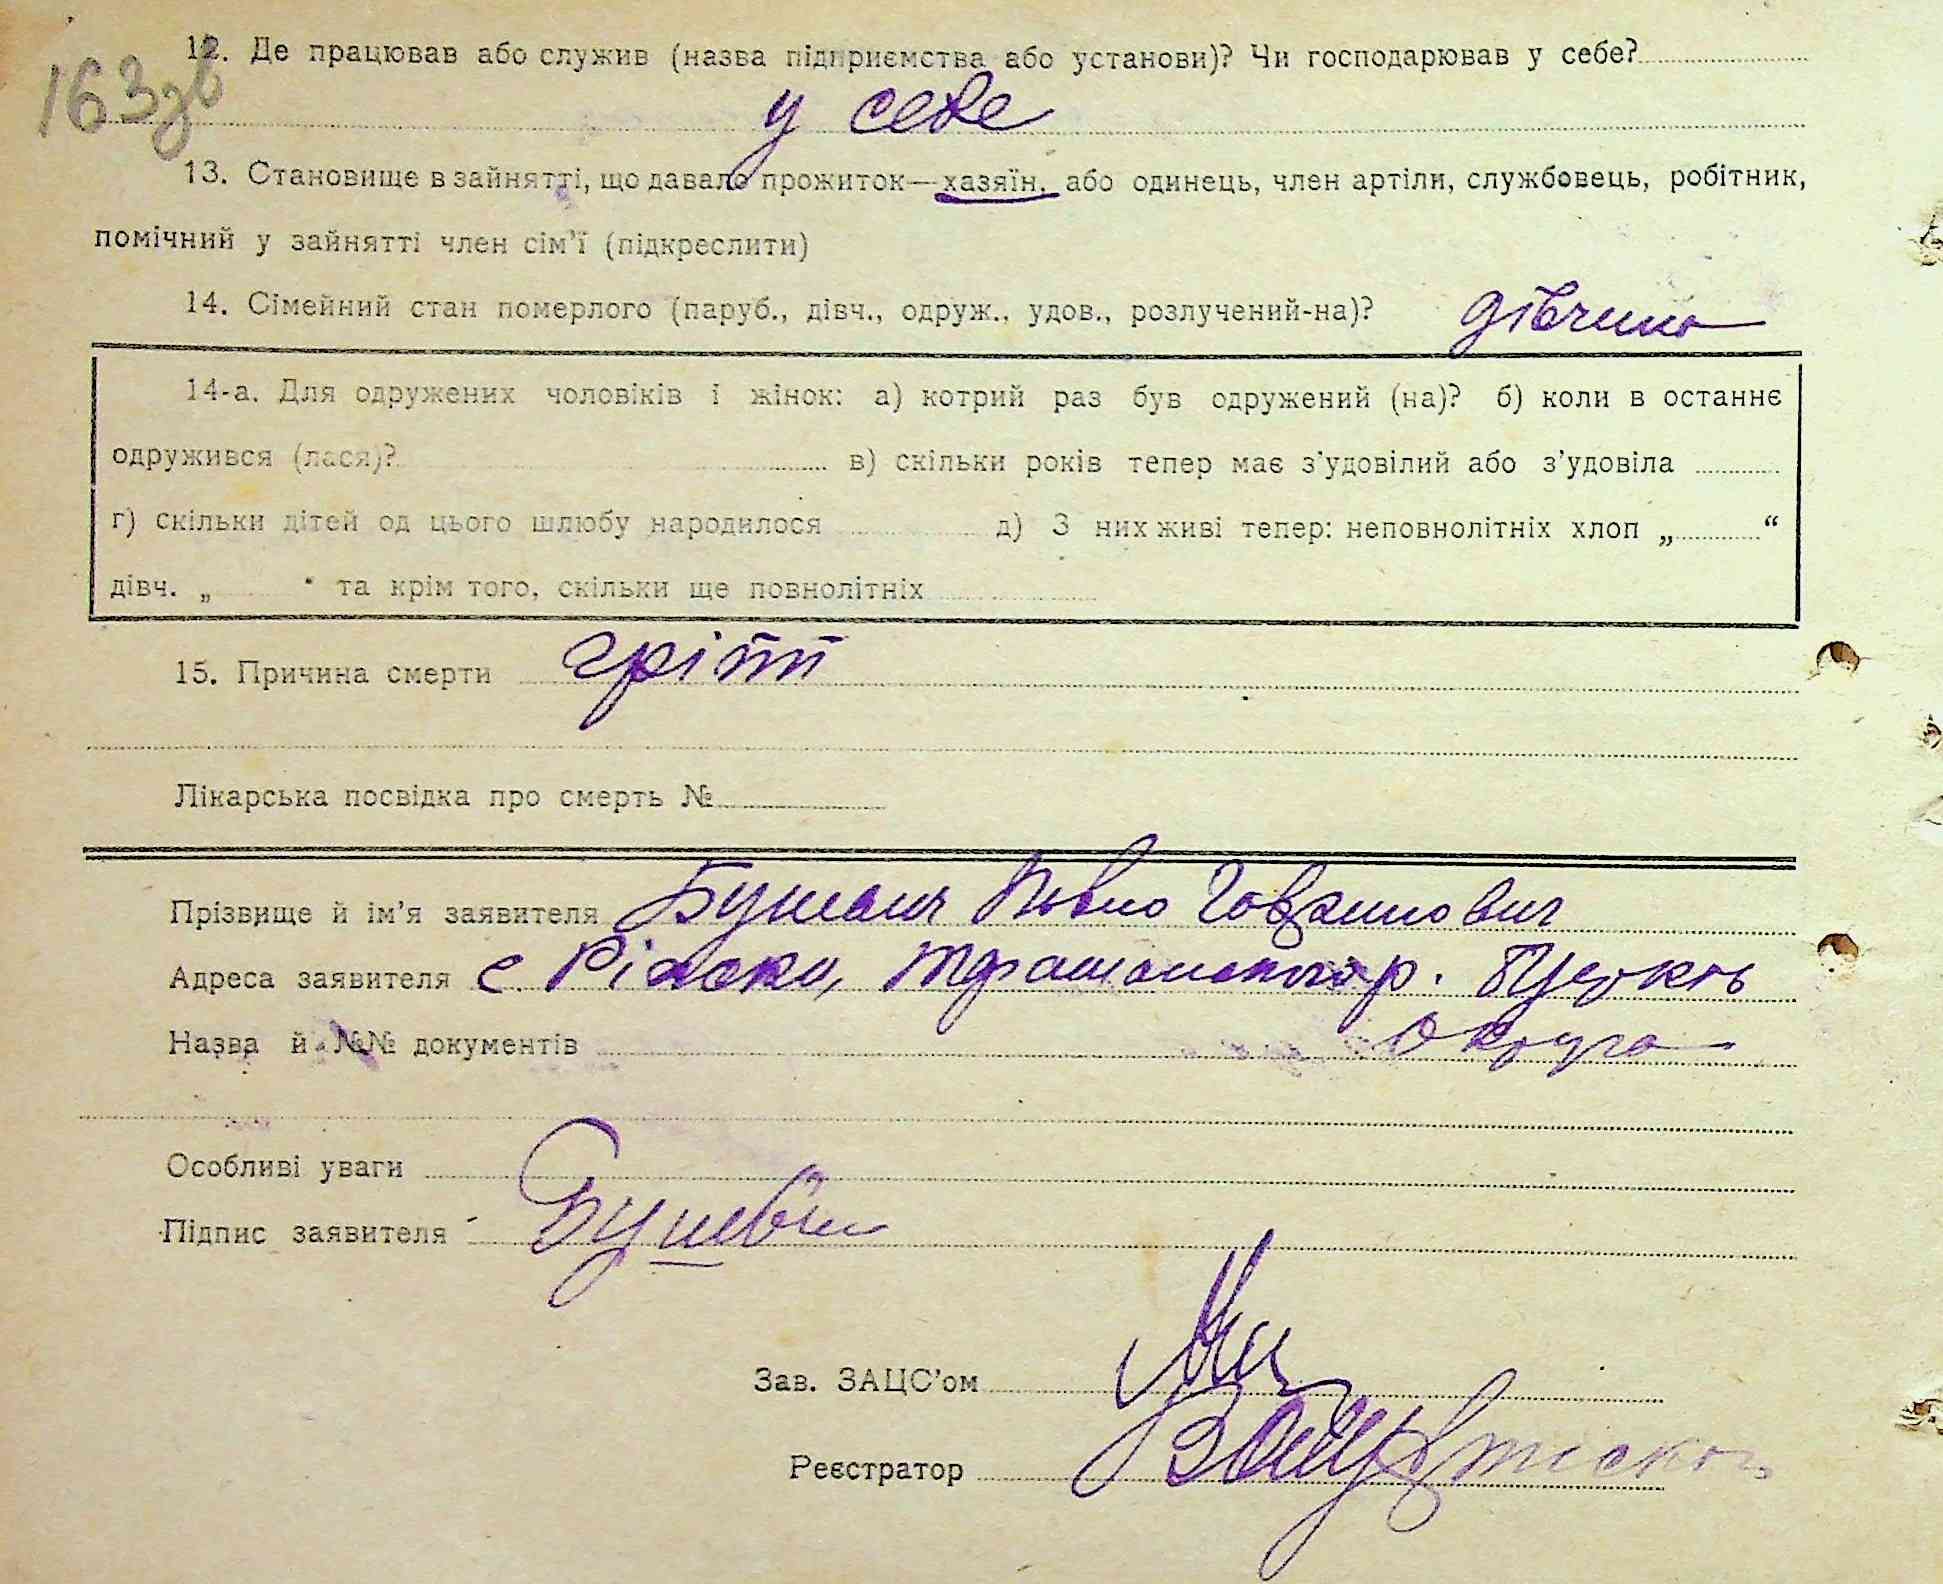 163зв
12. Де працював або служив (назва підприємства або установи)? Чи господарював у себе?
у себе
13. Становище в зайнятті, що давало прожиток—хазяїн, або одинець, член артіли, службовець, робітник,
помічний у зайнятті член сім'ї (підкреслити)
14. Сімейний стан померлого (паруб., дівч., одруж., удов., розлучений-на)? дівчина
14-а. Для одружених чоловіків і жінок: а) котрий раз був одружений (на)? б) коли в останнє
одружився (лася)? в) скільки років тепер має з'удовілий або з'удовіла
г) скільки дітей од цього шлюбу народилося д) З них живі тепер: неповнолітніх хлоп „ “
дівч. „ “ та крім того, скільки ще повнолітніх
15. Причина смерти гріпп
Лікарська посвідка про смерть №
Прізвище й ім'я заявителя Павло
Адреса заявителя с.
Назва й №№ документів Округа
Особливі уваги
Підпис заявителя
Зав. ЗАЦС'ом
Реєстратор